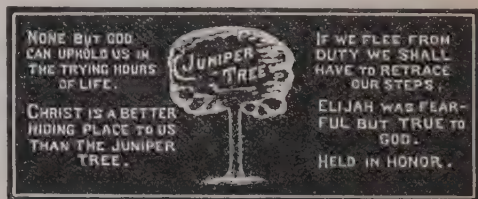 NONE BUT GOD
CAN UPHOLD US IN
THE TRYING HOURS
OF LIFE.
CHRIST IS A BETTER
HIDING PLACE TO US
THAN THE JUNIPER
TREE.
JUNIPER
TREE
IF WE FLEE FROM
DUTY WE SHALL
HAVE TO RETRACE
OUR STEPS.
ELIJAH WAS FEAR-
FUL BUT TRUE TO
GOD.
HELD IN HONOR.